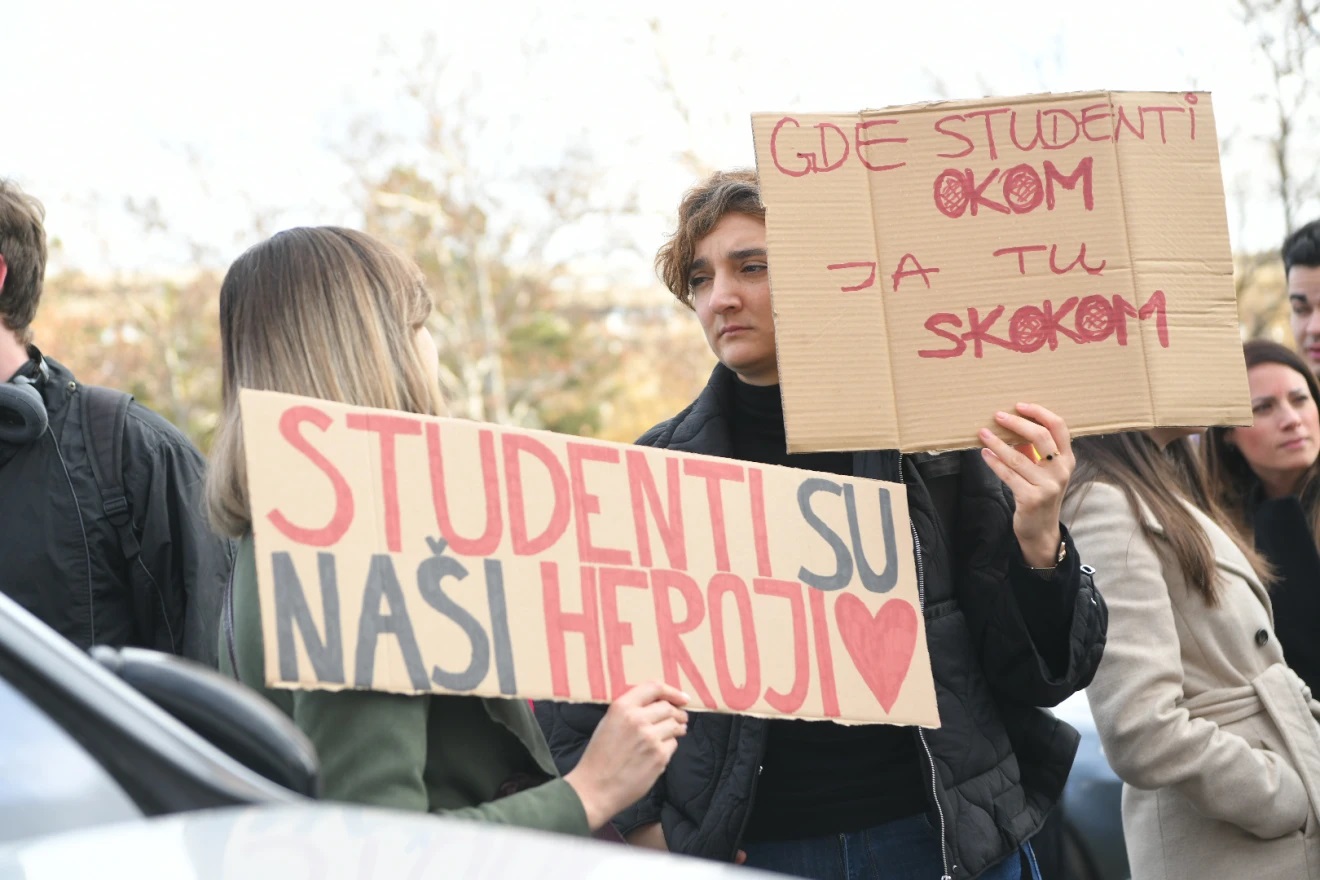 GDE STUDENTi
OKOM
JA TU
SKOKOM
STUDENTI SU
NAŠI HEROJI